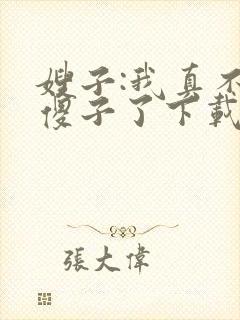 嫂子:我真不
傻子了下載
張大偉